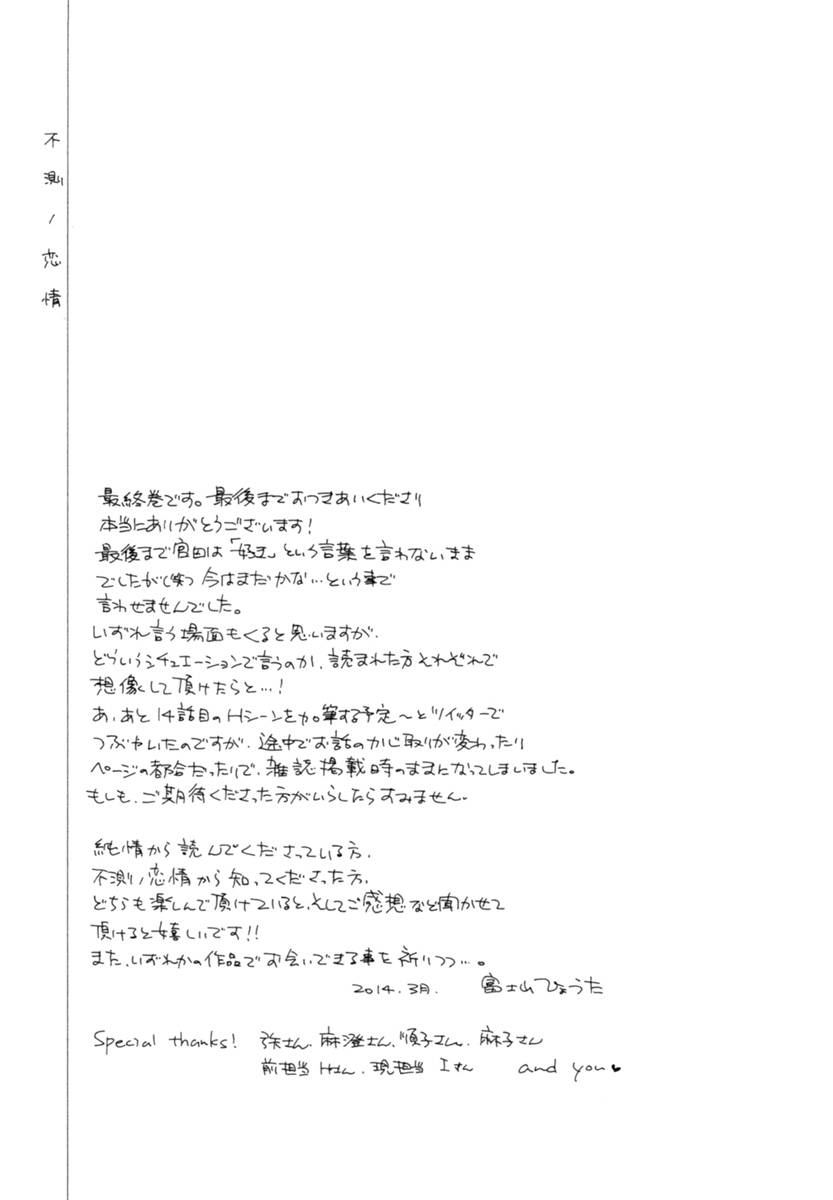 不測ノ恋情
最終巻です。最後までおつきあいくださり
本当にありがとうございます!
最後まで官田は「好き」という言葉を言わないまま
でしたが(笑) 今はまだかな…という事で
言わせませんでした。
いずれ言う場面もくると思いますが、
どういうシチュエーションで言うのか、読まれた方それぞれで
想像して頂けたらと…!
あ、あと14話目のHシーンを加筆する予定〜とツイッターで
つぶやいたのですが、途中でお話のかじ取りが変わったり
ページの都合だったりで、雑誌掲載時のままになってしまいました。
もしも、ご期待くださった方がいらしたらすみません。
純情から読んでくださっている方、
不測ノ恋情から知ってくださった方、
どちらも楽しんで頂けていると、そしてご感想など聞かせて
頂けると嬉しいです!!
また、いずれかの作品でお会いできる事を祈りつつ…。
2014.3月. 富士山ひょうた
Special thanks! 弥さん、麻澄さん、順子さん、麻子さん
前担当Hさん、現担当Iさん and you♥